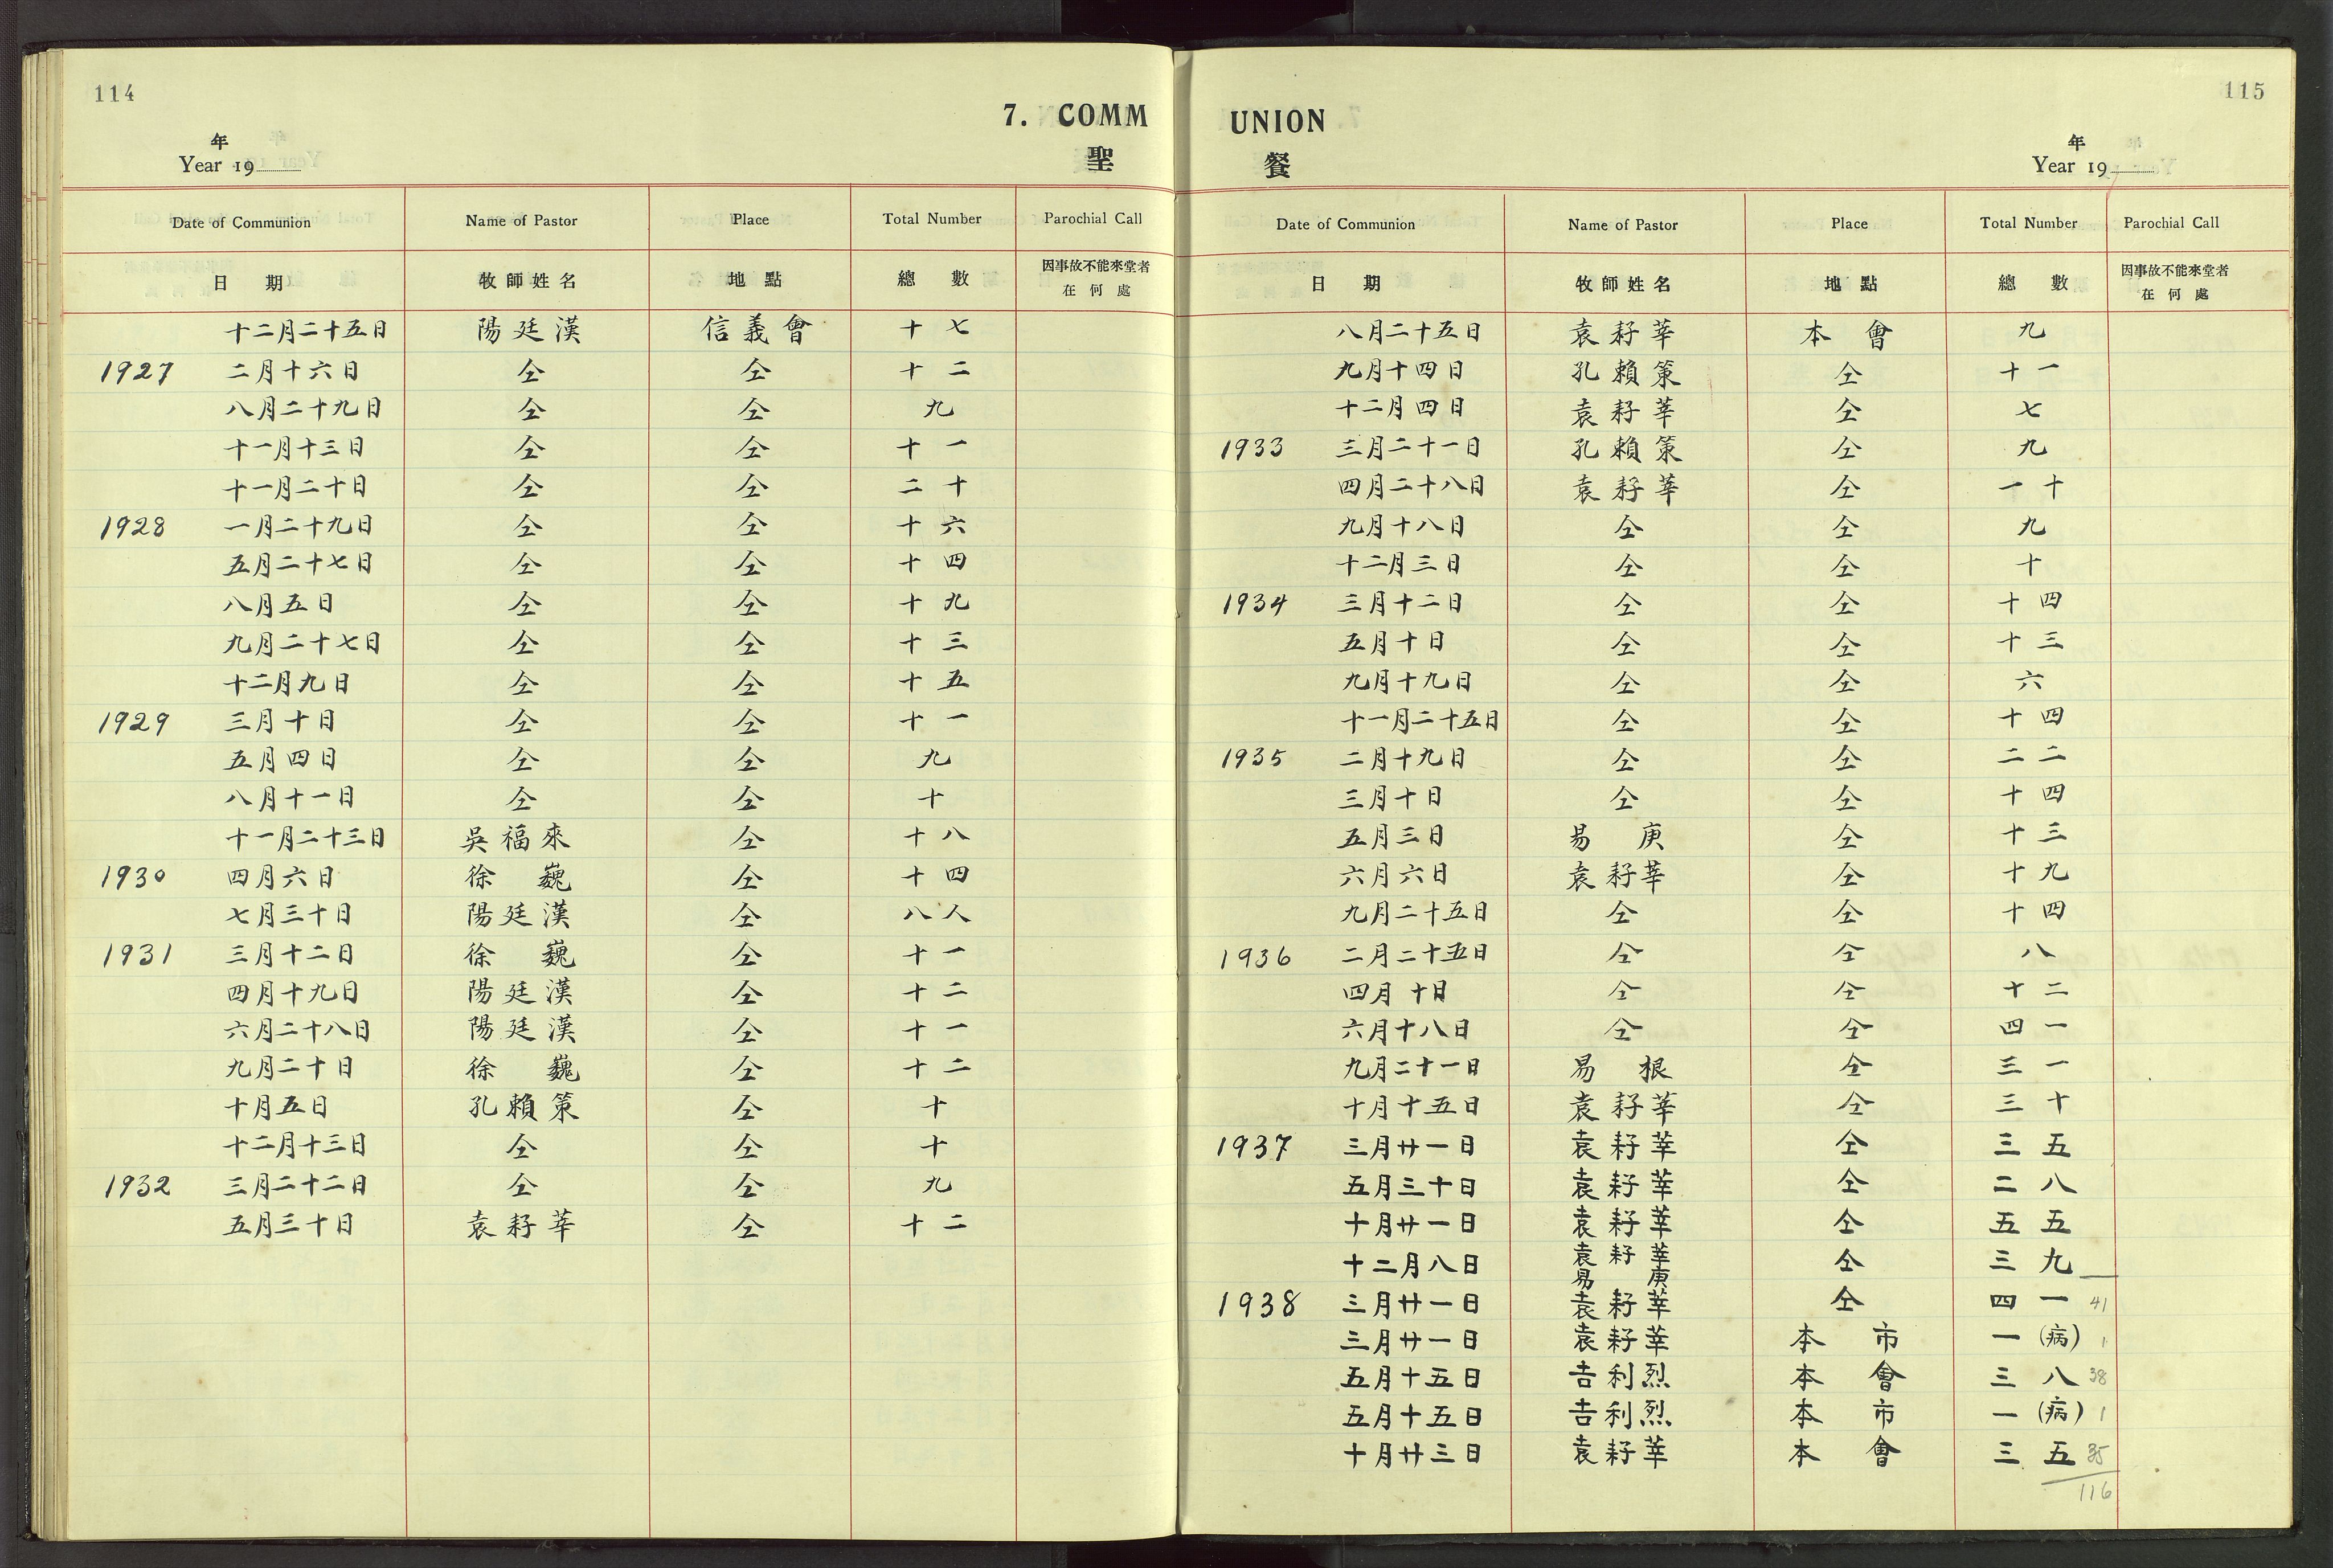 114
7. COMM
年
Year 19
聖
Date of Communion Name of Pastor Place Total Number Parochial Call
日 期 牧師姓名 地點 總 數 因事故不能來堂者
在何處
十二月二十五日 陽廷漢 信義會 十七
1927 二月十六日 仝 仝 十二
八月二十九日 仝 仝 九
十一月十三日 仝 仝 十一
十一月二十日 仝 仝 二十
1928 一月二十九日 仝 仝 十六
五月二十七日 仝 仝 十四
八月五日 仝 仝 十九
九月二十七日 仝 仝 十三
十二月九日 仝 仝 十五
1929 三月十日 仝 仝 十一
五月四日 仝 仝 九
八月十一日 仝 仝 十
十一月二十三日 吳福來 仝 十八
1930 四月六日 徐 巍 仝 十四
七月三十日 陽廷漢 仝 八人
1931 三月十二日 徐 巍 仝 十一
四月十九日 陽廷漢 仝 十二
六月二十八日 陽廷漢 仝 十一
九月二十日 徐 巍 仝 十二
十月五日 孔賴策 仝 十
十二月十三日 仝 仝 十
1932 三月二十二日 仝 仝 九
五月三十日 袁耔莘 仝 十二
115
UNION
年
Year 19
餐
Date of Communion Name of Pastor Place Total Number Parochial Call
日 期 牧師姓名 地點 總 數 因事故不能來堂者
在何處
八月二十五日 袁耔莘 本會 九
九月十四日 孔賴策 仝 十一
十二月四日 袁耔莘 仝 七
1933 三月二十一日 孔賴策 仝 九
四月二十八日 袁耔莘 仝 一十
九月十八日 仝 仝 九
十二月三日 仝 仝 十
1934 三月十二日 仝 仝 十四
五月十日 仝 仝 十三
九月十九日 仝 仝 六
十一月二十五日 仝 仝 十四
1935 二月十九日 仝 仝 二二
三月十日 仝 仝 十四
五月三日 易 庚 仝 十三
六月六日 袁耔莘 仝 十九
九月二十五日 仝 仝 十四
1936 二月二十五日 仝 仝 八
四月十日 仝 仝 十二
六月十八日 仝 仝 四一
九月二十一日 易 根 仝 三一
十月十五日 袁耔莘 仝 三十
1937 三月廿一日 袁耔莘 仝 三五
五月三十日 袁耔莘 仝 二八
十月廿一日 袁耔莘 仝 五五
十二月八日 袁耔莘 仝 三九
易 庚
1938 三月廿一日 袁耔莘 仝 四一 41
三月廿一日 袁耔莘 本市 一(病) 1
五月十五日 吉利烈 本會 三八 38
五月十五日 吉利烈 本市 一(病) 1
十月廿三日 袁耔莘 本會 三五 35
116